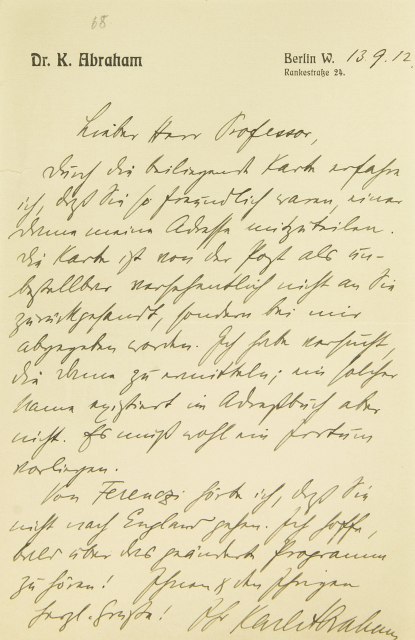 68
Dr. K. Abraham
Berlin W. 13.9.12.
Rankestraße 24.
Lieber Herr Professor,
durch die beiliegende Karte erfahre
ich, daß Sie so freundlich waren, einer
Dame meine Adresse mitzuteilen.
Die Karte ist von der Post als un-
bestellbar versehentlich nicht an Sie
zurückgesandt, sondern bei mir
abgegeben worden. Ich habe versucht,
die Dame zu ermitteln; ein solcher
Name existiert im Adreßbuch aber
nicht. Es muß wohl ein Irrtum
vorliegen.
Von Ferenczi hörte ich, daß Sie
nicht nach England gehen. Ich hoffe,
bald über das geänderte Programm
zu hören! Ihnen & den Ihrigen
herzl. Grüße! Ihr Karl Abraham